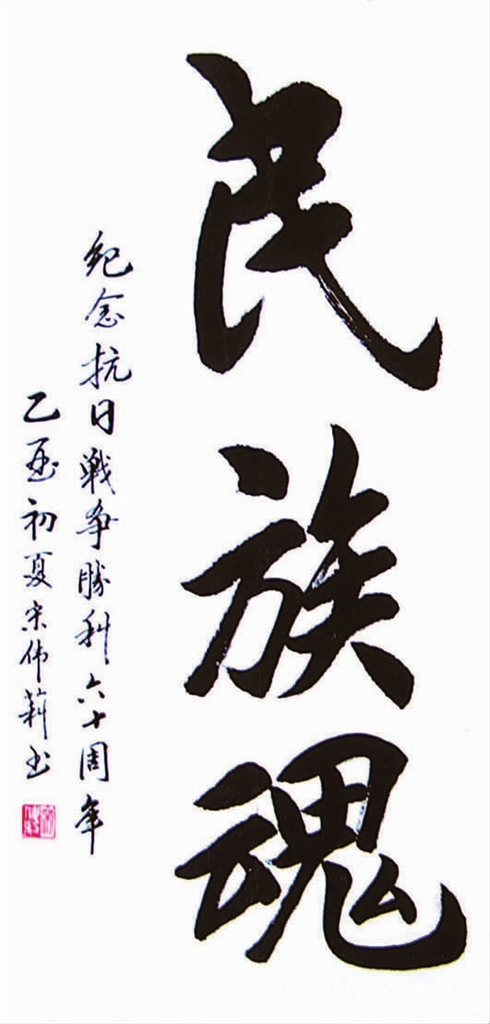 民族魂
纪念抗日戰争勝利六十周年
乙酉初夏宋伟莉书